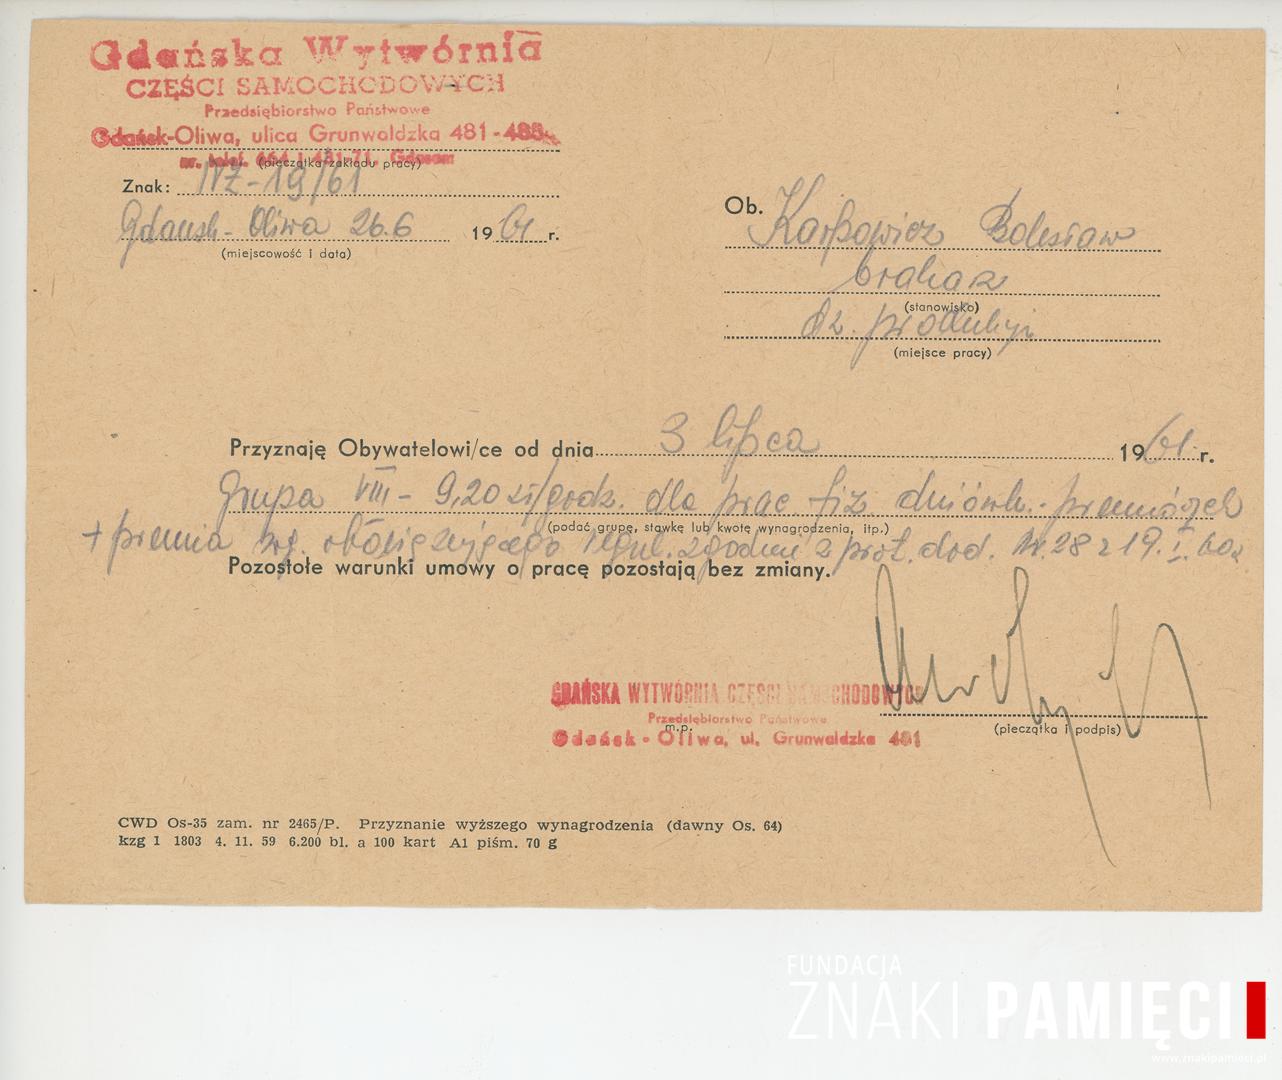 Gdańska Wytwórnia
CZĘŚCI SAMOCHODOWYCH
Przedsiębiorstwo Państwowe
Gdańsk-Oliwa, ulica Grunwaldzka 481-485
(pieczątka zakładu pracy)
Znak: NZ-19/61
Gdańsk-Oliwa 26.6 1961 r.
(miejscowość i data)
Ob. Karpowicz Bolesław
brakarz
(stanowisko)
dz. produkcji
(miejsce pracy)
Przyznaję Obywatelowi/ce od dnia 3 lipca 1961 r.
Grupa VIII - 9,20 zł/godz. dla prac. fiz. dniówk.-premiowych
(podać grupę, stawkę lub kwotę wynagrodzenia, itp.)
+ premia wg. obowiązującego regul. zgodnie z prot. dod. Nr. 28 z 19.I.60r
Pozostałe warunki umowy o pracę pozostają bez zmiany.
GDAŃSKA WYTWÓRNIA CZĘŚCI SAMOCHODOWYCH
Przedsiębiorstwo Państwowe
m.p.
Gdańsk - Oliwa, ul. Grunwaldzka 481
(pieczątka i podpis)
CWD Os-35 zam. nr 2465/P. Przyznanie wyższego wynagrodzenia (dawny Os. 64)
kzg 1 1803 4. 11. 59 6.200 bl. a 100 kart A1 piśm. 70 g
FUNDACJA
ZNAKI PAMIĘCI
www.znakipamieci.pl